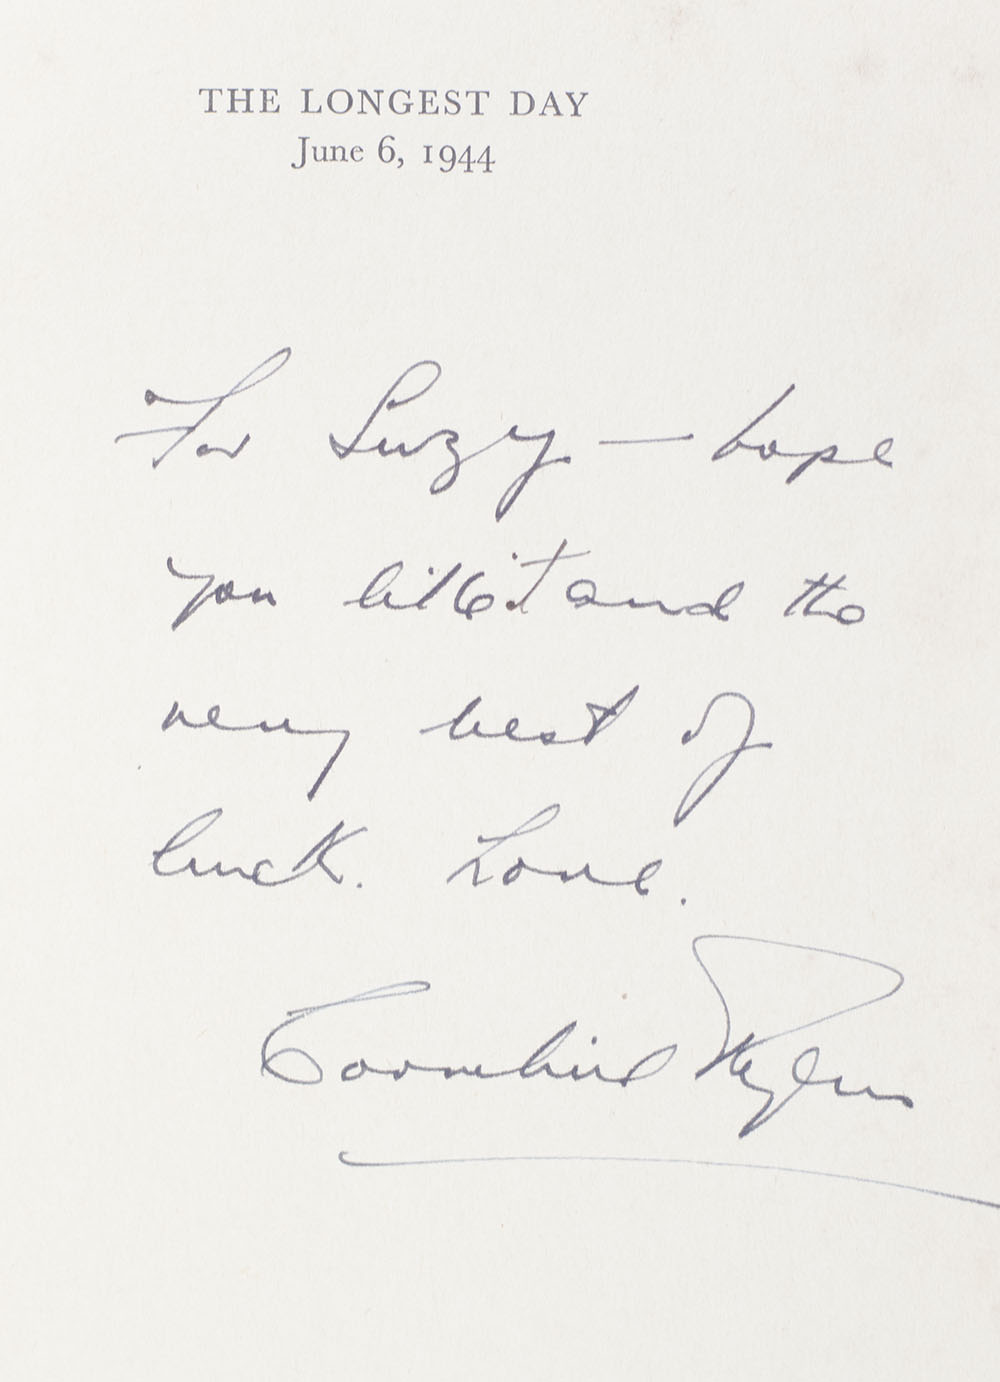 THE LONGEST DAY
June 6, 1944
For Suzy — hope
you like it and the
very best of
luck. Love.
Cornelius Ryan